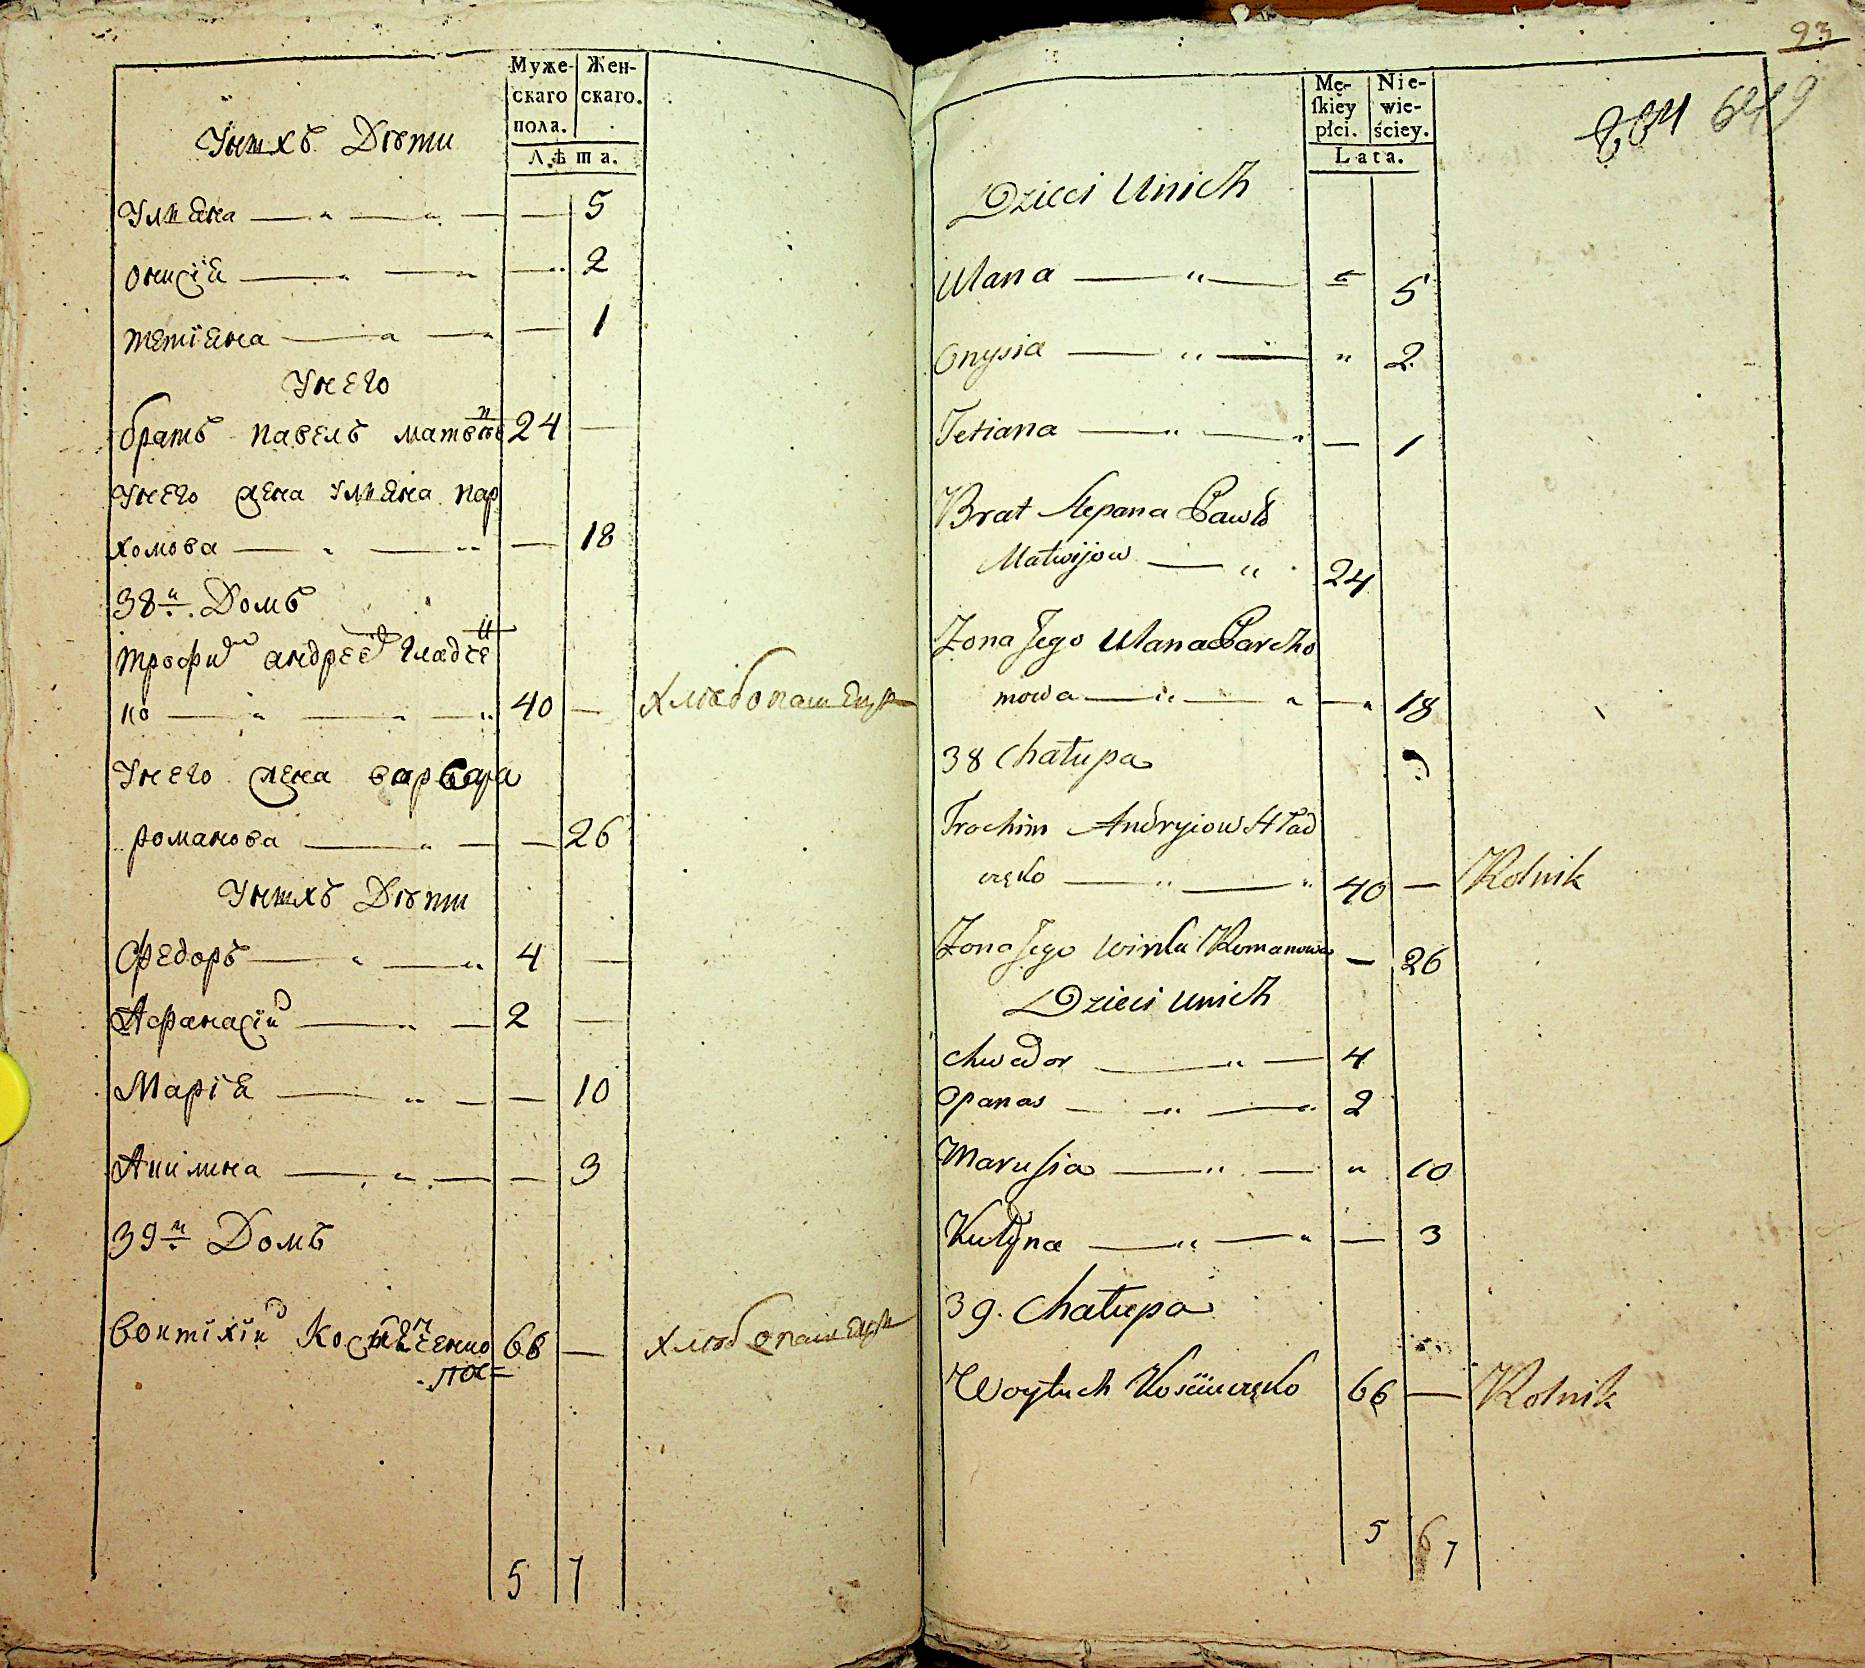 Муже-
скаго
пола.
Жен-
скаго.
Лѣта.
Унихъ Дѣти
Улияна — „ — „ — — 5
Онисїя — „ — „ — „ 2
Тетїяна — „ — „ — 1
Унего
братъ павелъ матвѣевъ 24 —
Унего жена Улияна пар
хомова — „ — „ — 18
38й Домъ
трофим андреев гладче
нко — „ — „ — „ 40 — хлѣбопашецъ
Унего жена варвара
романова — „ — — 26
Унихъ Дѣти
Федоръ — „ — „ 4 —
Афанасїй — „ — 2 —
Марїя — „ — — 10
Акилина — „ — — 3
39й Домъ
Войтїхїй 66 — хлѣбопашецъ
5 7
23
649
Mę-
skiey
płci.
Nie-
wie-
ściey.
Lata.
Dzieci Unich
Ulana — „ — „ 5
Onysia — „ — „ 2
Tetiana — „ — „ — 1
Brat Stepana Pawło
Matwijow — „ 24
Zona Jego Ulana Parcho
mowa — „ — „ — „ 18
38 Chałupa
Trochim Andryiow Hład
częko — „ — „ 40 — Rolnik
Zona Jego Romanowa — 26
Dzieci Unich
Chwedor — „ — 4
Opanas — „ — „ 2
Marusia — „ — „ 10
Kulyna — „ — „ — 3
39. Chałupa
Woytuch 66 — Rolnik
5 6 7